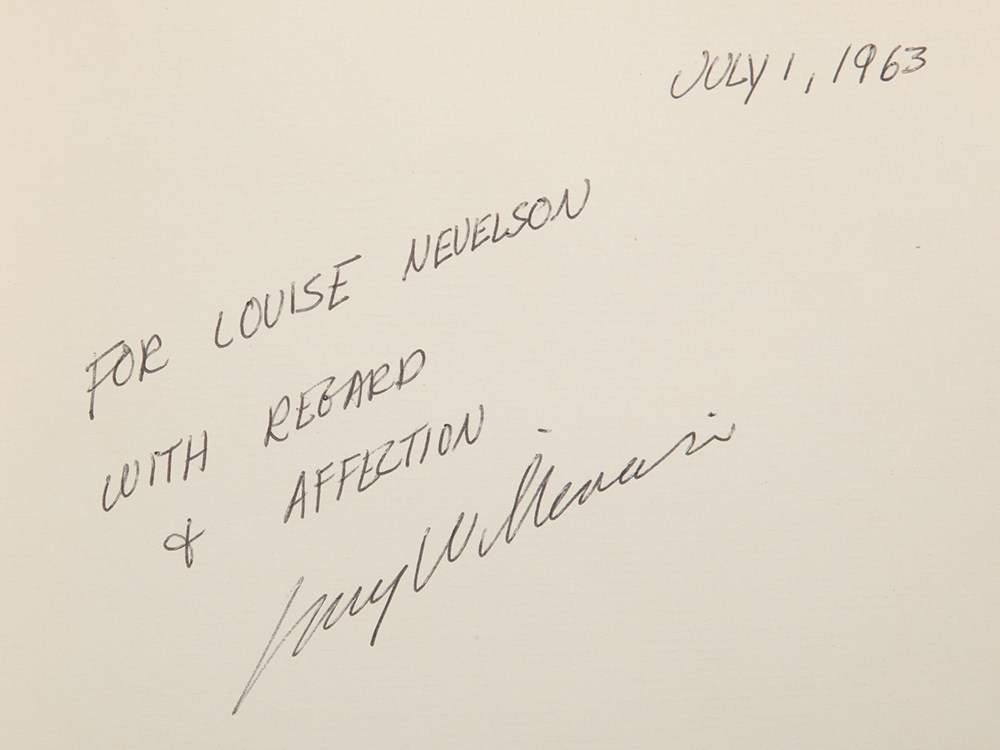 JULY 1, 1963
FOR LOUISE NEVELSON
WITH REGARD
& AFFECTION